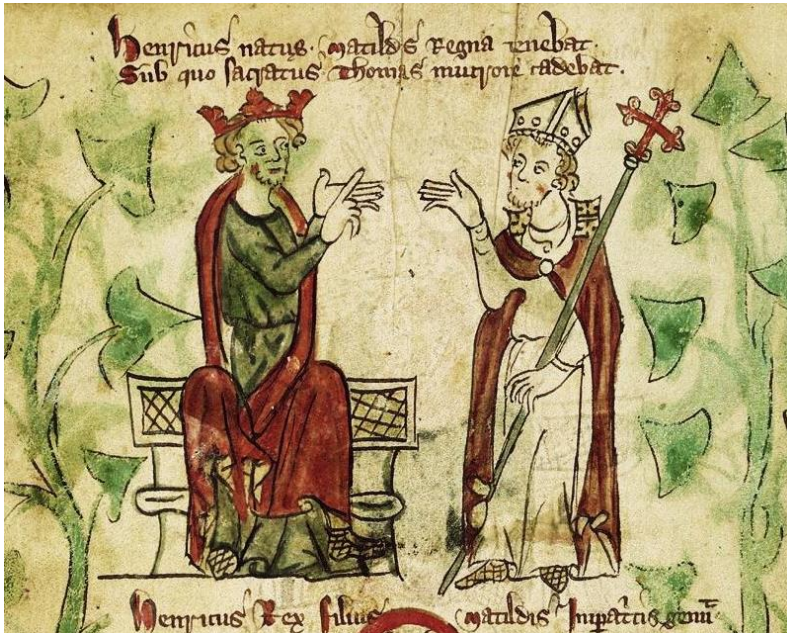 Henricus natus · Matild' Regna tenebat ·
Sub quo sacratus · Thomas mucrone cadebat ·
Henricus Rex filius Matildis Inpat'cis